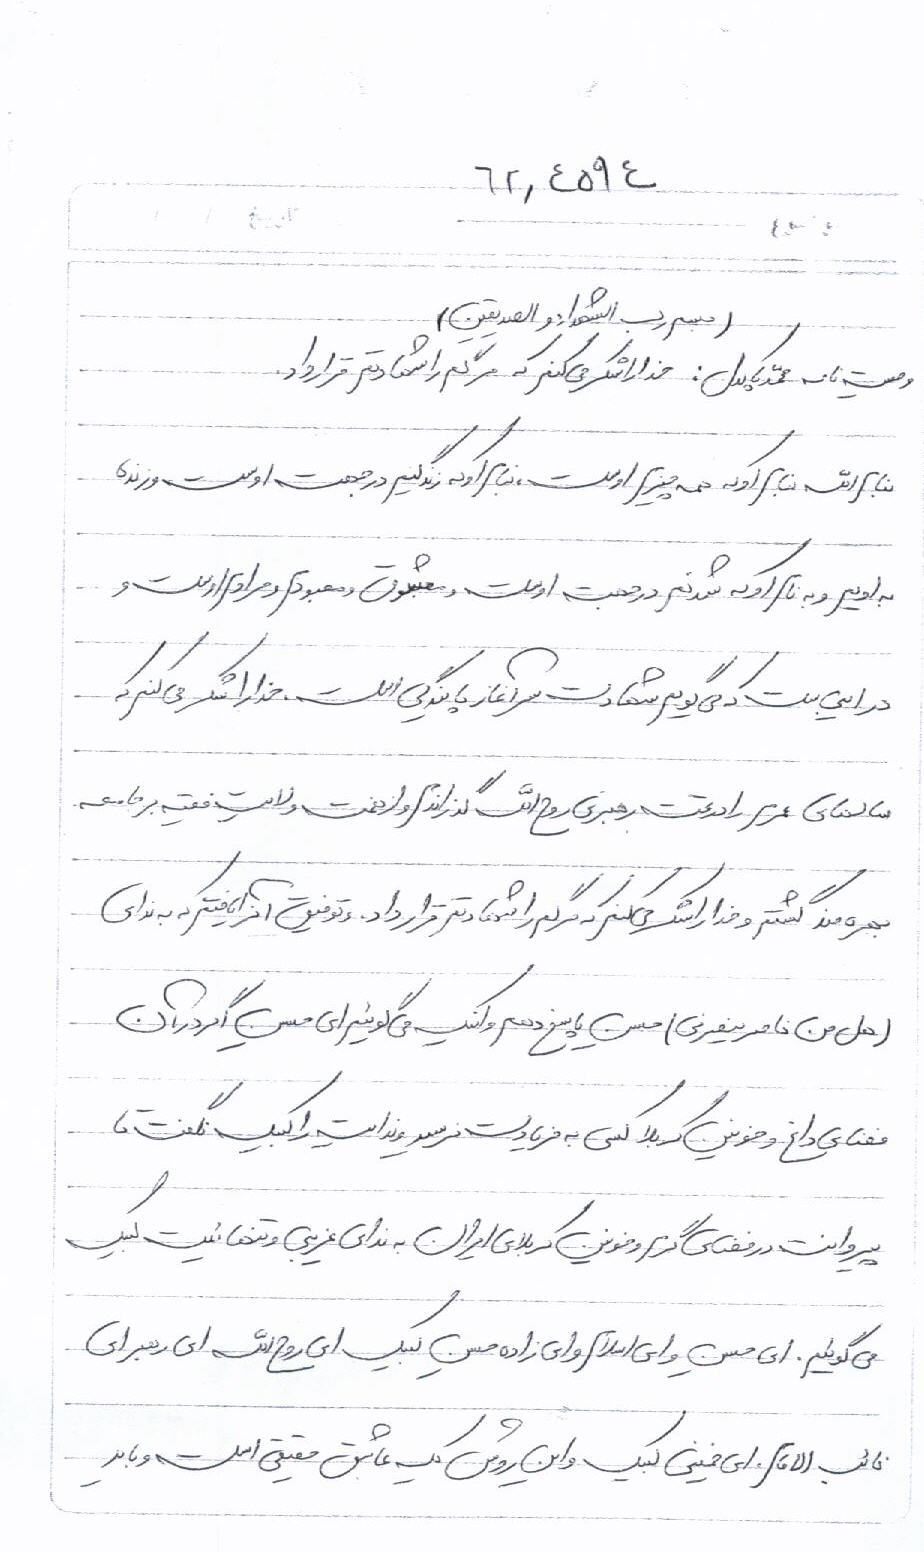 ٦٢,٤٥٩٤
موضوع تاریخ / /
(بسم رب الشهداء و الصدیقین)
وصیت نامه محمد پاکدل: خدا را شکر می‌کنم که مرگم را شهادتم قرار داد.
بنام الله بنام او که همه چیزم اوست، بنام او که زندگیم در جهت اوست و زنده
به اویم و به نام او که شدنم در جهت اوست و معشوق و معبودم و مرادم اوست و
در این بیت که می گویم شهادت سر آغاز پایندگی است. خدا را شکر می کنم که
سالهای عمرم را در تحت رهبری روح الله گذراندم و از نعمت ولایت فقیه بر جامعه
بهره مند گشتم و خدا را شکر می کنم که مرگم را شهادتم قرار داد. و توفیق آنرا یافتم که به ندای
(هل من ناصر ینصرنی) حسین پاسخ دهم و لبیک می گوئیم ای حسین اگر در آن
فضای داغ و خونین کربلا کسی به فریادت نرسید و ندایت را لبیک نگفت ما
پیروانت در فضای گرم و خونین کربلای ایران به ندای غریبی و تنهائیت لبیک
می گوئیم. ای حسین و ای اسلام و ای زاده حسین لبیک ای روح الله ای رهبر ای
نائب الامام. ای خمینی لبیک و این روش یک عاشق حقیقی است و باید